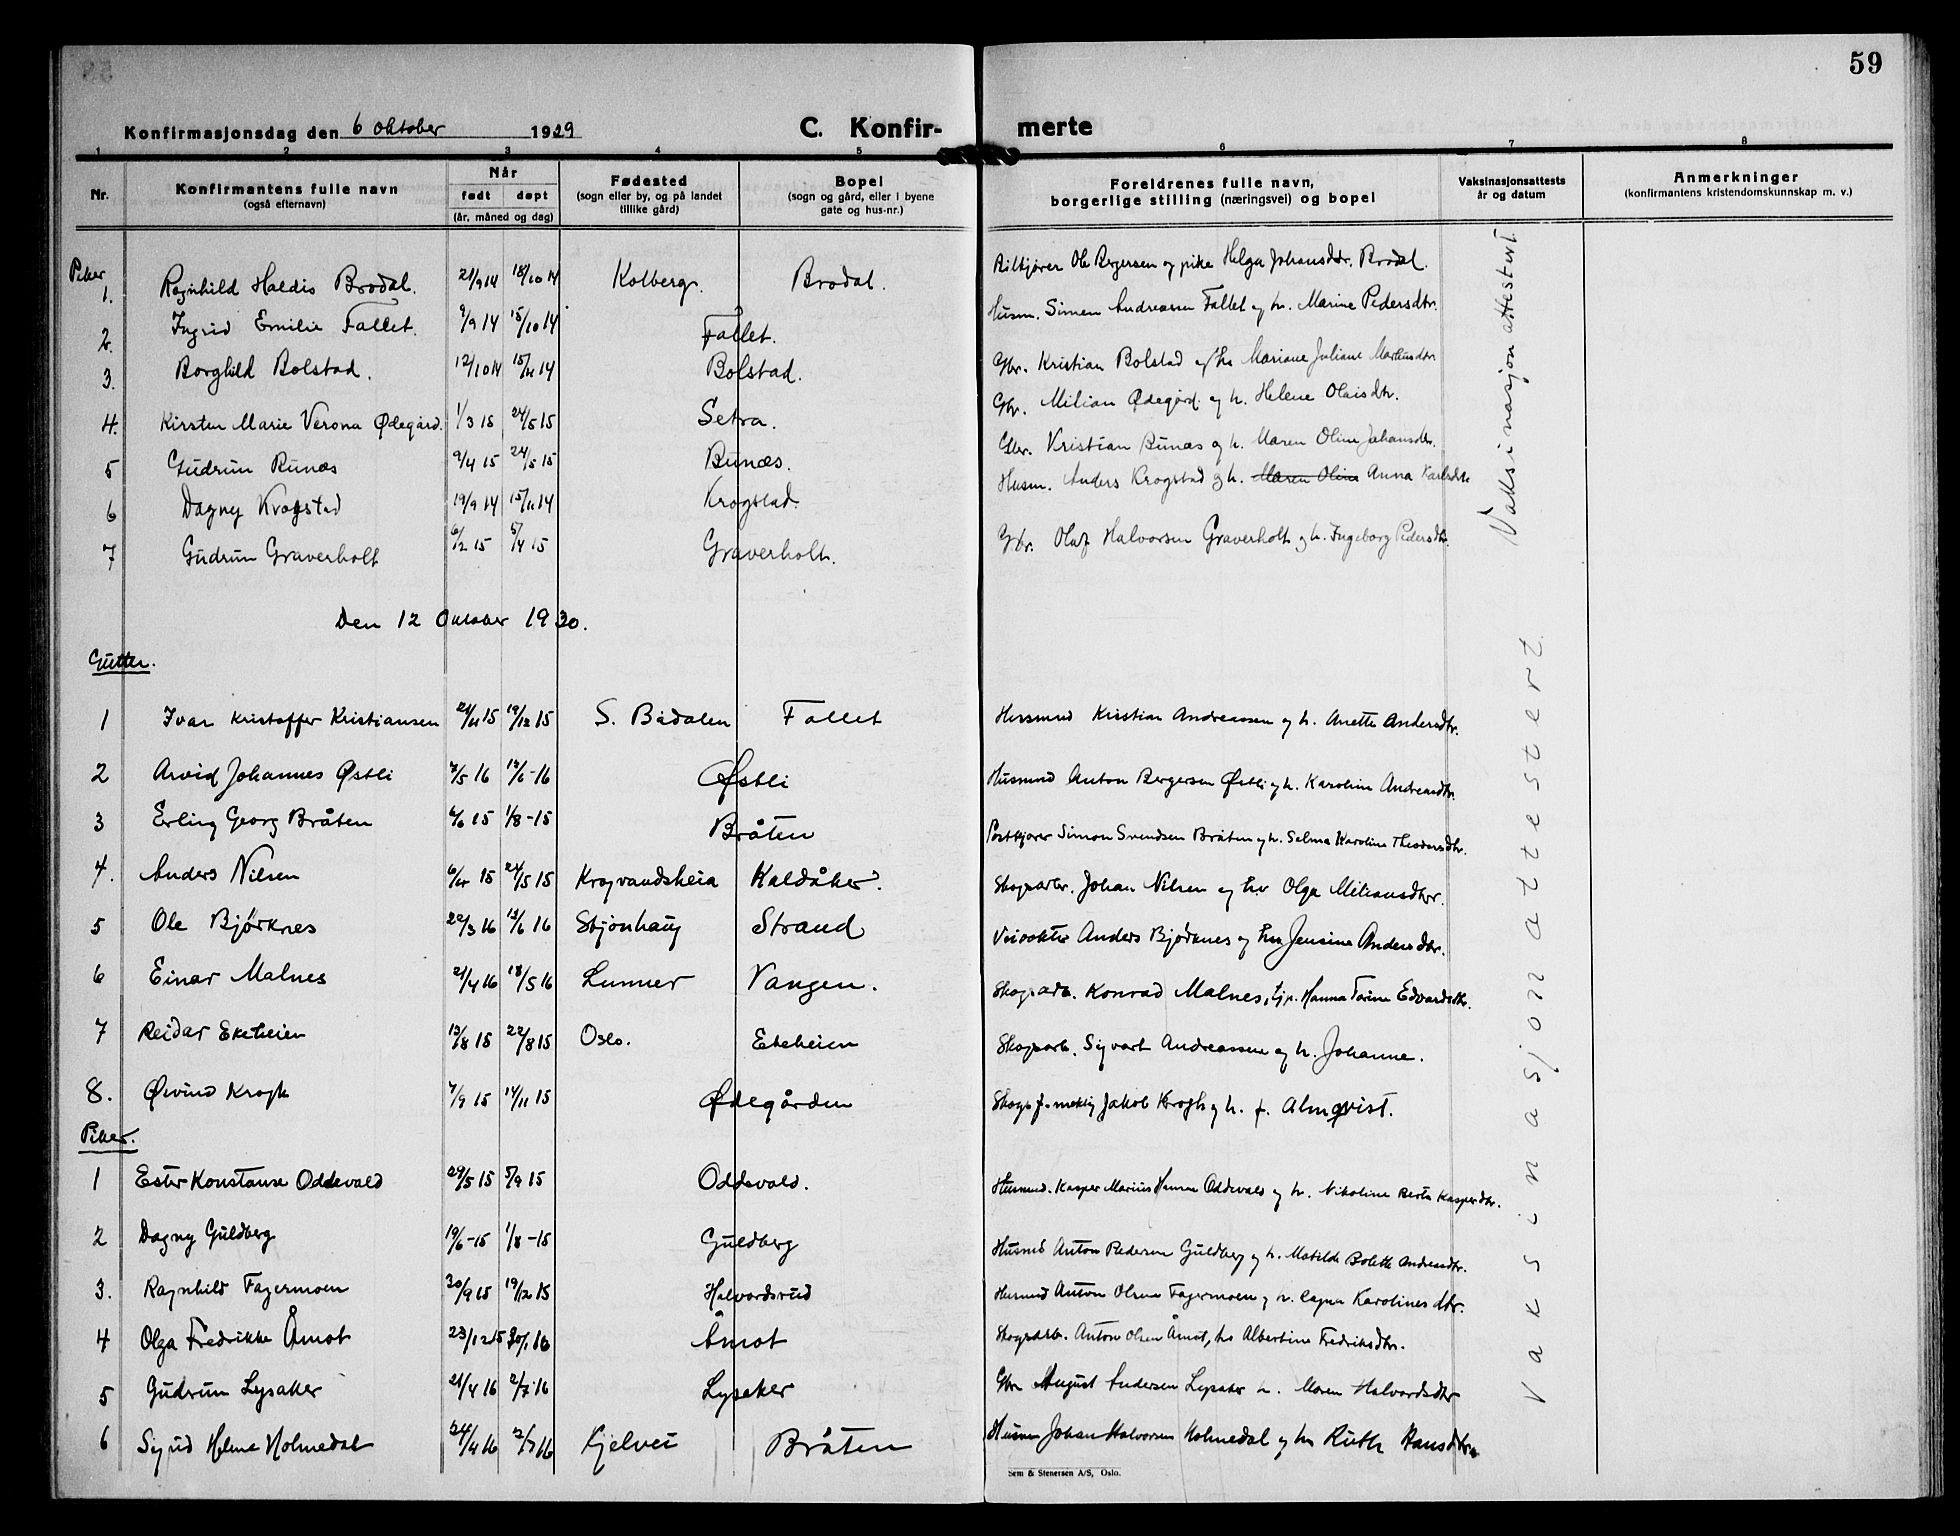 59
Konfirmasjonsdag den 6 oktober 1929 C. Konfir- merte
1 2 3 4 5 6 7 8
Nr. Konfirmantens fulle navn (også efternavn) Når født døpt (år, måned og dag) Fødested (sogn eller by, og på landet tillike gård) Bopel (sogn og gård, eller i byene gate og hus-nr.) Foreldrenes fulle navn, borgerlige stilling (næringsvei) og bopel Vaksinasjonsattests år og datum Anmerkninger (konfirmantens kristendomskunnskap m. v.)
Piker
1. Ragnhild Haldis Brodal. 21/9 14 18/10 14 Kolberg. Brodal. Bilkjører Ole Bergersen og pike Helga Johansdtr. Brodal.
2. Ingrid Emilie Fallet. 9/9 14 18/10 14 Fallet. Husm. Simen Andreassen Fallet og h. Marine Pedersdtr.
3. Borghild Bolstad. 12/10 14 15/11 14 Bolstad. Gbr. Kristian Bolstad og hu Mariane Juliane Martinsdtr
4. Kirsten Marie Verona Ødegård. 1/3 15 24/5 15 Setra. Gbr. Milian Ødegård og h. Helene Olaisdtr.
5 Gudrun Bunæs 9/4 15 24/5 15 Bunæs. Gbr. Kristian Bunæs og h. Maren Oline Johansdtr.
6 Dagny Krogstad 19/9 14 15/11 14 Krogstad. Husm. Anders Krogstad og h. Maren Oline Anna Karlsdtr
7 Gudrun Graverholt 6/2 15 5/4 15 Graverholt. Gbr. Olaf Halvorsen Graverholt og h. Ingeborg Pedersdtr.
Vaksinasjon attestert
Den 12 Oktober 1930.
Gutter.
1 Ivar Kristoffer Kristiansen 21/11 15 19/12 15 S. Bådalen Fallet Husmnd Kristian Andreassen og h. Anette Andersdtr.
2 Arvid Johannes Østli 7/5 16 12/6-16 Østli Husmnd Anton Bergersen Østli og h. Karoline Andreasdtr.
3 Erling Georg Bråten 6/6 15 1/8-15 Bråten Postkjører Simon Svendsen Bråten og h. Selma Karoline Theodorsdtr.
4. Anders Nilsen 24/5 15 Krogvandsheia Kaldåker. Skogsarbr. Johan Nilsen og hu Olga Miliansdtr.
5 Ole Bjørknes 20/3 16 12/6 16 Stjonhaug Strand Anders Bjørknes og hu Jensine Andersdtr.
6 Einar Malnes 21/4 16 18/5 16 Lunner Vangen. Skogsarb. Konrad Malnes, tjp. Hanna Torine Edvardsdtr.
7 Reidar Ekeheien 13/8 15 22/8 15 Oslo. Ekeheien Skogsarb. Sigvart Andreassen og h. Johanne.
8. Øivind Krogh 7/9 15 14/11 15 Ødegården Skogsf.mektig Jakob Krogh og h. f. Almqvist.
Piker.
1 Ester Konstanse Oddevald 29/5 15 5/9 15 Oddevald. Husmnd. Kasper Marius Hansen Oddevald og h. Nikoline Berte Kaspersdtr.
2 Dagny Guldberg 19/6-15 1/8-15 Guldberg Husmnd Anton Pedersen Guldberg og h. Matilde Bolette Andreasdtr.
3. Ragnhild Fagermoen 30/9 15 19/12 15 Halvordsrud Husmnd Anton Olsen Fagermoen og h. Karolinesdtr.
4 Olga Fredrikke Åmot 23/12 15 30/1 16 Åmot Skogsarb. Anton Olsen Åmot, hu Albertine Fredriksdtr.
5 Gudrun Lysaker 21/4 16 2/7 16 Lysaker Gbr August Andersen Lysaker h. Maren Halvordsdtr
6 Sigrid Helene Holmedal 24/4 16 2/7 16 Kjelvei Bråten Husmn Johan Halvorsen Holmedal og hu Ruth Hansdtr.
Vaksinasjon attestert
Sem & Stenersen A/S, Oslo.